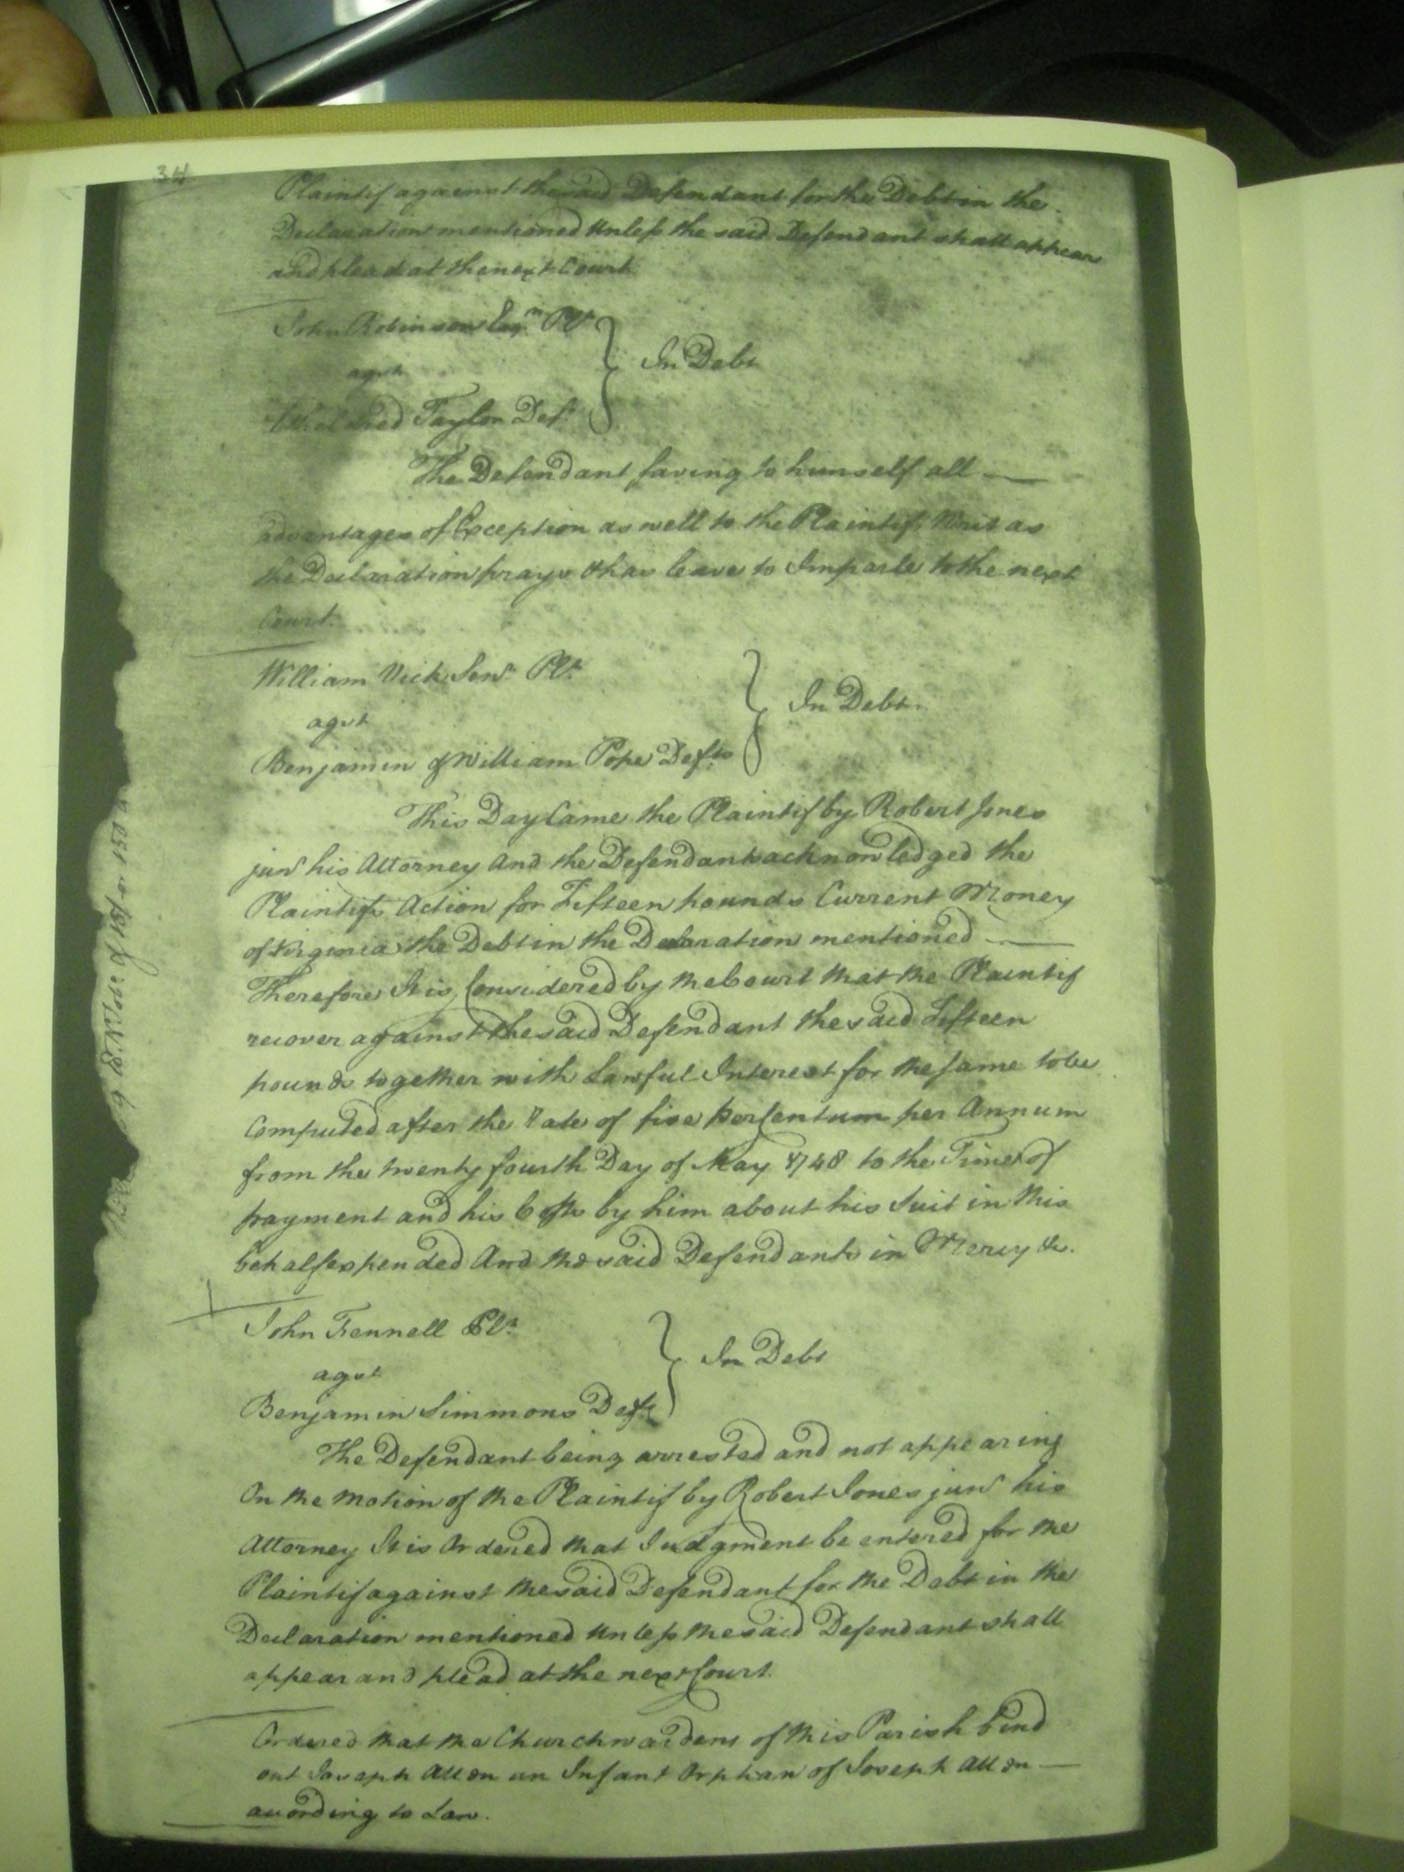 34
Plaintif against the said Defendant for the Debt in the
Declaration mentioned Unless the said Defendant shall appear
and plead at the next Court
John Robinson Esqr. Plt.
agst
Etheldred Taylor Deft.
In Debt
The Defendant saving to himself all
advantages of Exception as well to the Plaintifs Writ as
the Declaration prays & has leave to Imparle to the next
Court.
William Vick Senr. Plt.
agst
Benjamin & William Pope Defts
In Debt.
This Day Came the Plaintif by Robert Jones
junr his Attorney And the Defendants acknowledged the
Plaintifs Action for Fifteen pounds Current Money
of Virginia the Debt in the Declaration mentioned
Therefore It is Considered by the Court that the Plaintif
recover against the said Defendant the said Fifteen
pounds together with Lawful Interest for the same to be
Computed after the Rate of five per Centum per Annum
from the twenty fourth Day of May 1748 to the Time of
payment and his Costs by him about his Suit in this
behalf expended And the said Defendants in Mercy &c.
John Fennell Plt.
agst
Benjamin Simmons Deft.
In Debt
The Defendant being arrested and not appearing
On the Motion of the Plaintif by Robert Jones junr his
Attorney It is Ordered that Judgment be entered for the
Plaintif against the said Defendant for the Debt in the
Declaration mentioned Unless the said Defendant shall
appear and plead at the next Court.
Ordered that the Churchwardens of this Parish bind
out Joseph Allen an Infant Orphan of Joseph Allen
according to Law.